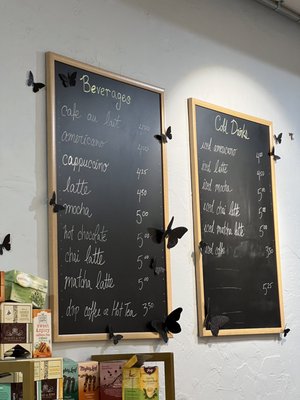 Beverages
cafe au lait 4.00
americano
cappuccino 4.25
latte 4.50
mocha 5.00
hot chocolate 5.00
chai latte 5.00
matcha latte 5.00
drip coffee & Hot Tea 3.50
Cold Drink
iced americano 4.25
iced latte 5.00
iced mocha 5.00
iced chai latte 5.00
iced matcha latte 5.00
iced coffee 3.50
5.25